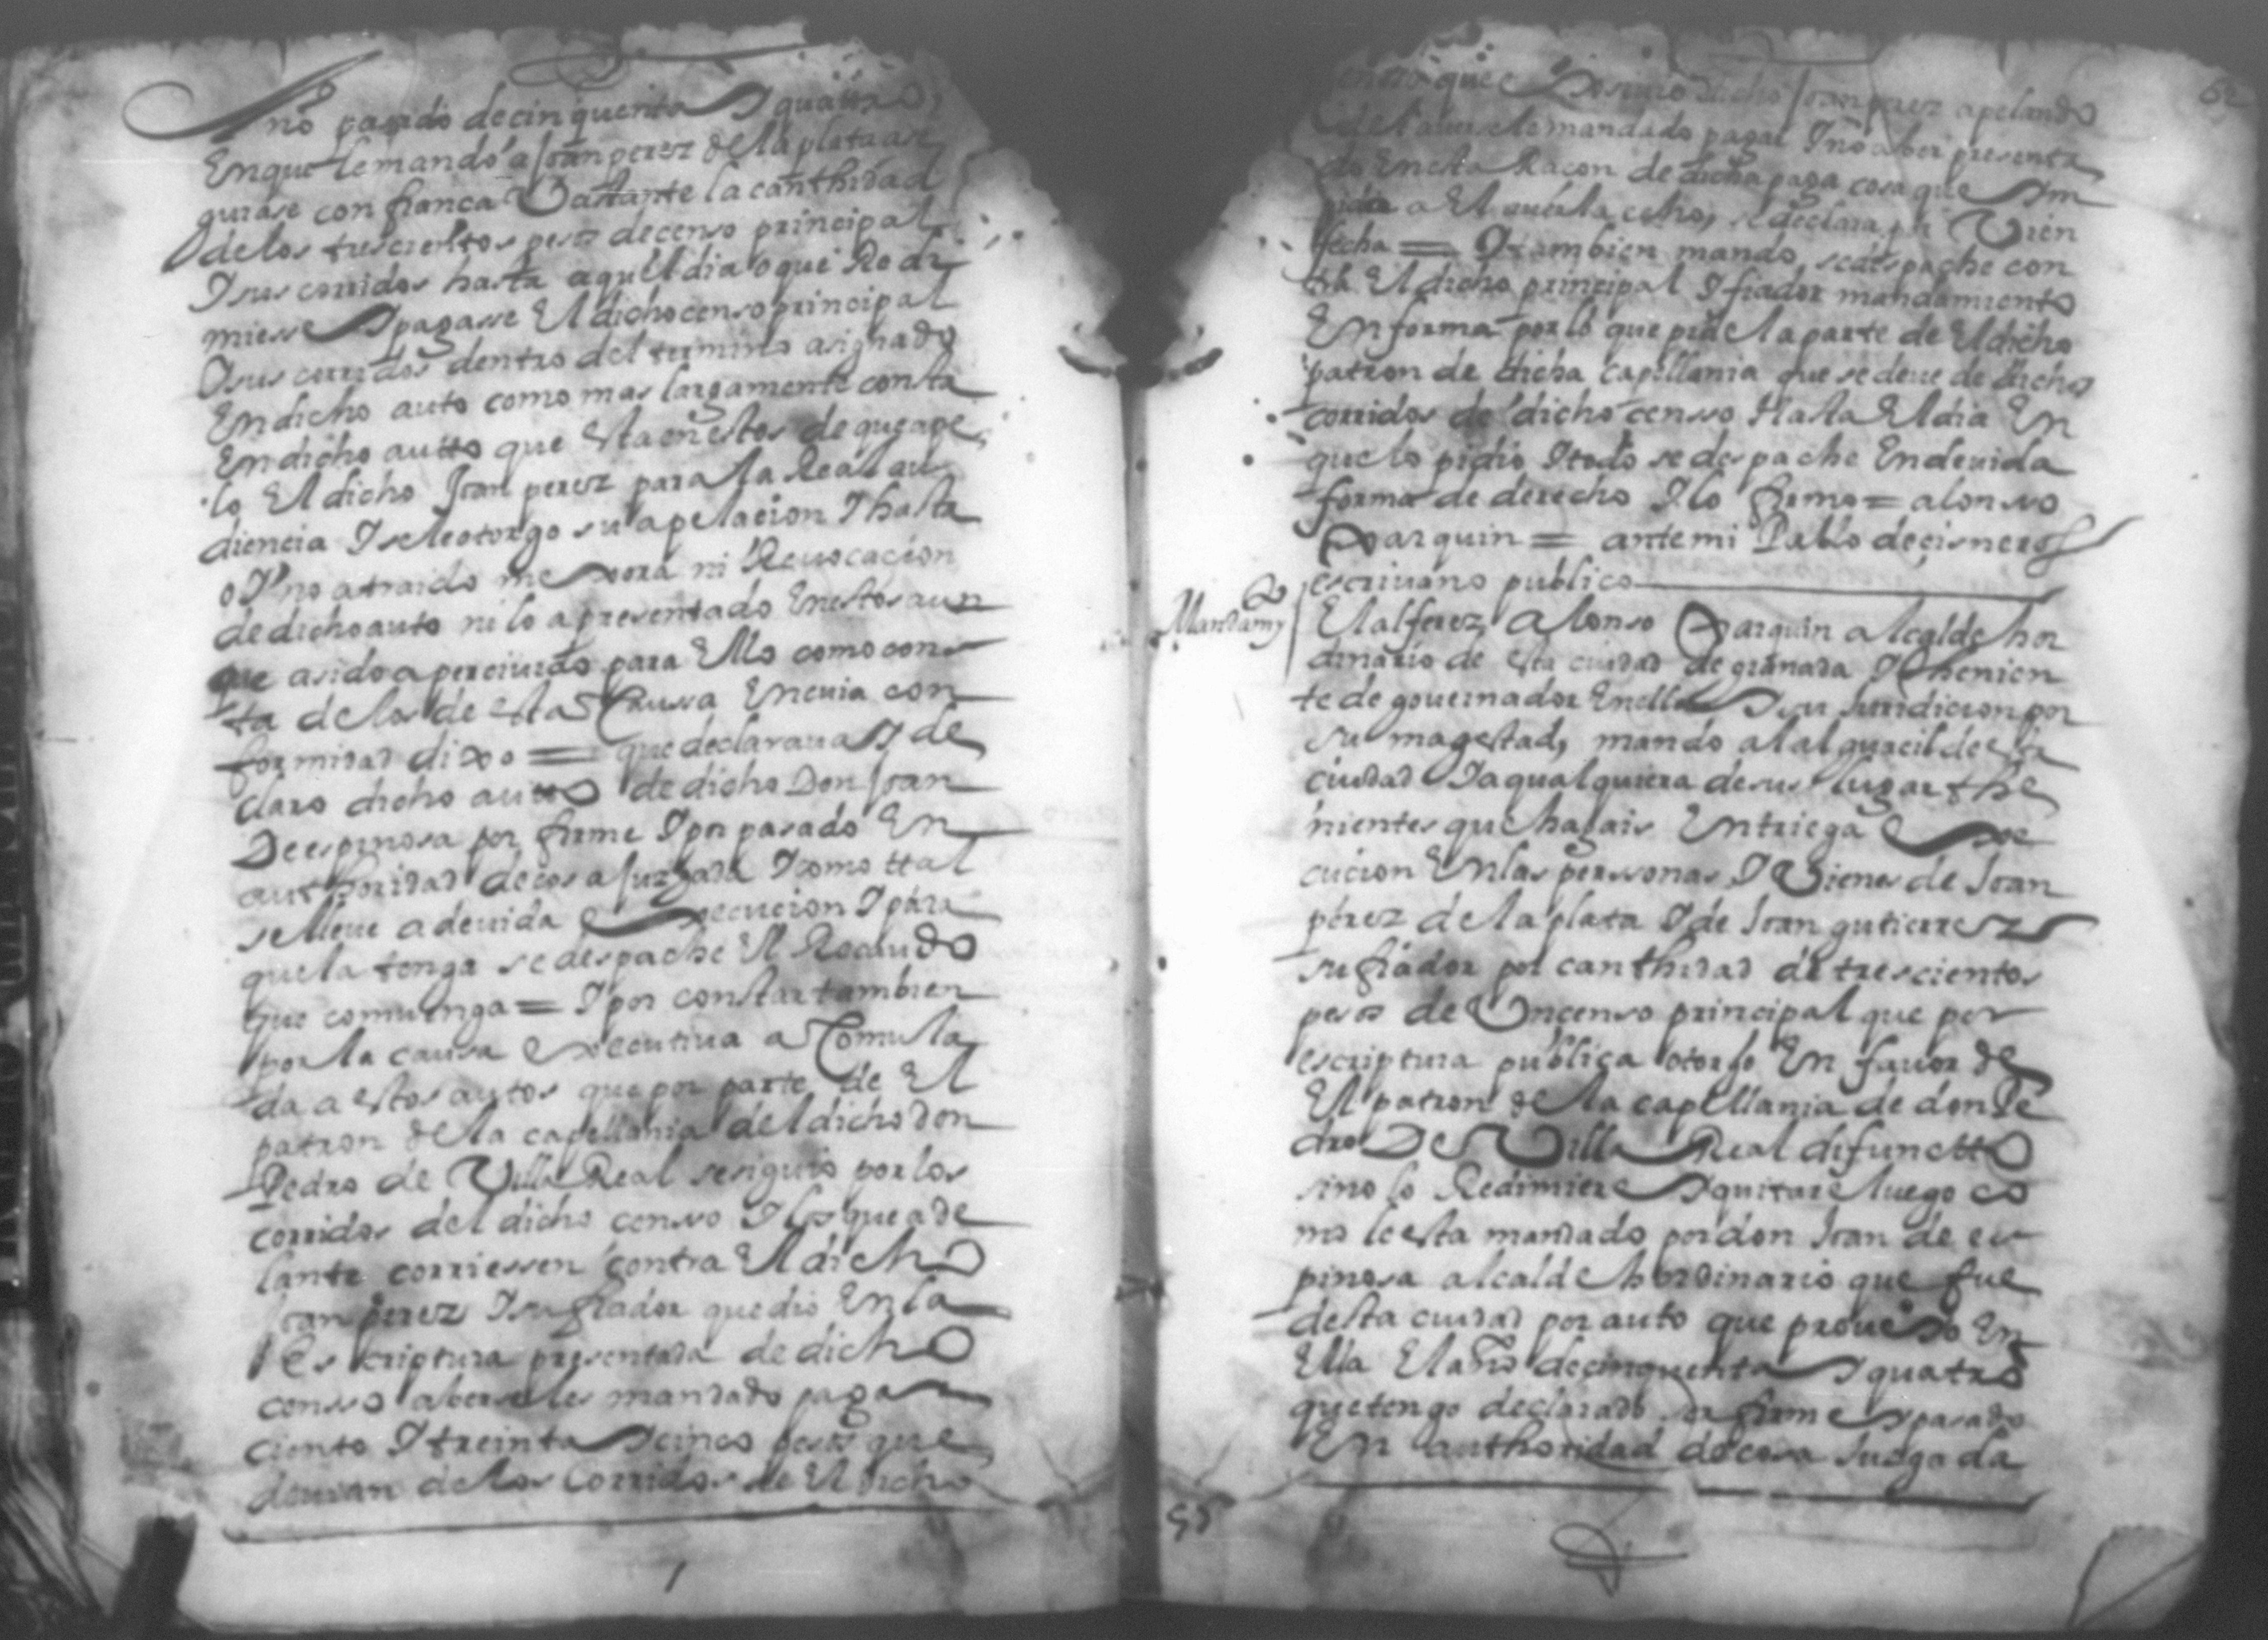 Año pasado de cinquenta I quattro,
En que le mandó a Joan perez de la plata ase
gurase con fianca Vastante la canthidad
de los trescientos pesos de censo principal
I sus corridos hasta aquel dia o que Redi
miesse I pagasse El dicho censo principal
I sus corridos dentro del termino asignado
En dicho auto como mas largamente consta
En dicho autto que esta en estos de que ape
lo El dicho Joan perez para la Real au
diencia I se le otorgo su apelacion I hasta
oI no a traido mexora ni Revocacion
de dicho auto ni lo a presentado En estos aun
que a sido apercivido para Ello como cons
ta de los de esta Caussa En cuia con
formidad dixo = que declarava I de
claro dicho autto de dicho Don Joan
De espinosa por firme I por pasado En
authoridad de cosa Juzgada I como ttal
se lleve a devida Execucion I para
que la tenga se despache El Recaudo
que convenga = I por constar tambien
por la causa Executiva a Comula
da a estos autos que por parte de El
patron de la capellania del dicho don
Pedro de Villa Real se siguio por los
corridos del dicho censso I los que ade
lante corriessen contra El dicho
Joan perez I su fiador que dio En la
Escriptura presentada de dicho
censso aberseles mandado pagar
ciento I treinta I cinco pesos que
devian de los Corridos de El dicho
62
censso que dicho Joan perez apelando
de averle mandado pagar I no aber presenta
do En esta Racon de dicha paga cosa que Im
pida a El averla echo, se declara por Vien
fecha = I tambien mando, se despache con
tra El dicho principal I fiador mandamiento
En forma por lo que pide la parte de El dicho
patron de dicha capellania que se deve de dichos
corridos de dicho censso Hasta El dia En
que lo pidio I todo se despache En devida
forma de derecho I lo firmo = alonsso
Xarquin = ante mi Pablo de cisneros
escrivano publico
Mandamyo
El alferez Alonso Xarquin alcalde hor
dinario de esta ciudad de granada I thenien
te de governador En ella I su Juridicion por
su magestad, mando al alguacil de esta
ciudad I a qualquiera de sus lugar the
nientes que hagais Entriega Exe
cucion En las perssonas I Vienes de Joan
perez de la plata I de Joan gutierrez
su fiador por canthidad de trescientos
pesos de Un censo principal que por
escriptura publica otorgo En favor de
El patron de la capellania de don Pe
dro De Villa Real difunctto
sino lo Redimiere I quitare luego co
mo le esta mandado por don Joan de es
pinosa alcalde hordinario que fue
desta ciudad por auto que proveyo En
Ella El año de cinquenta I quatro
que tengo declarado por firme I pasado
En authoridad de cosa Jusgada